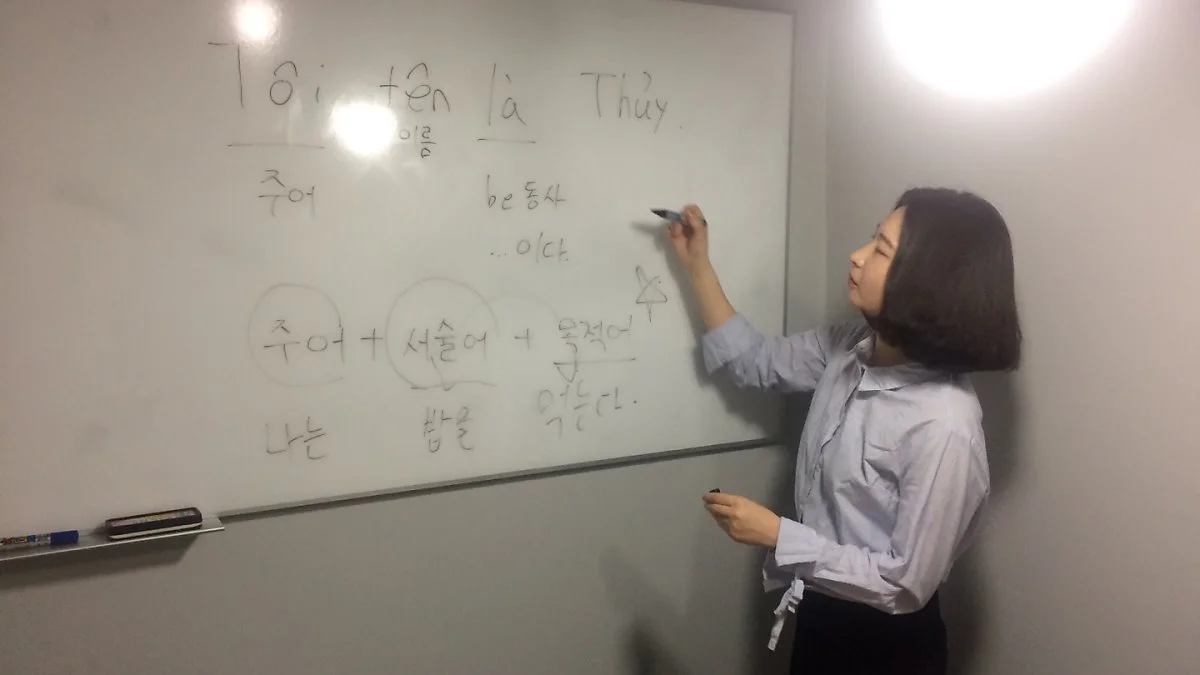 Tôi tên là Thủy.
이름
주어 be동사
...이다.
주어 + 서술어 + 목적어
나는 밥을 먹는다.